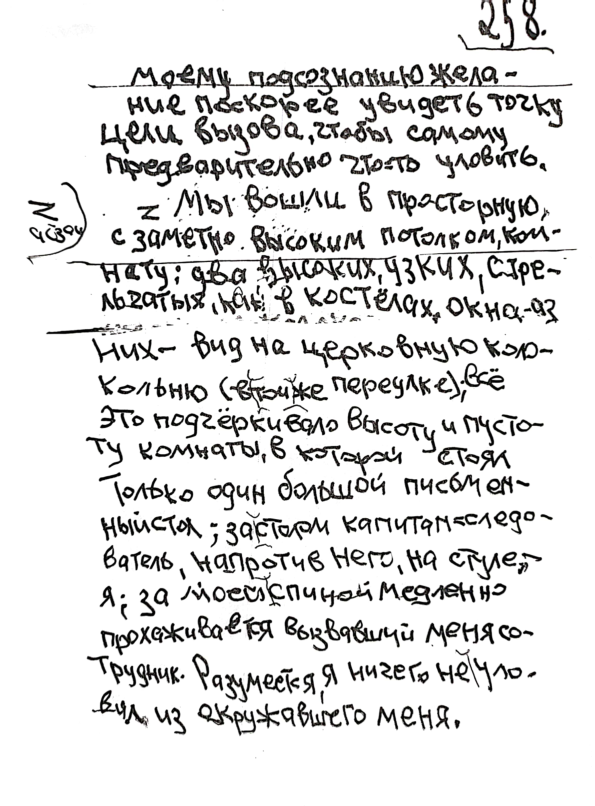 258.
моему подсознанию жела-
ние поскорее увидеть точку
цели вызова, чтобы самому
предварительно что-то уловить.
Z Мы вошли в просторную,
с заметно высоким потолком, ком-
нату; два высоких, узких, стре-
льчатых, как в костёлах, окна - из
них - вид на церковную коло-
кольню (в том же переулке); всё
это подчёркивало высоту и пусто-
ту комнаты, в которой стоял
только один большой письмен-
ный стол; за столом капитан=следо-
ватель, напротив него, на стуле, -
я; за моей спиной медленно
прохаживается вызвавший меня со-
трудник. Разумеется, я ничего не уло-
вил из окружавшего меня.